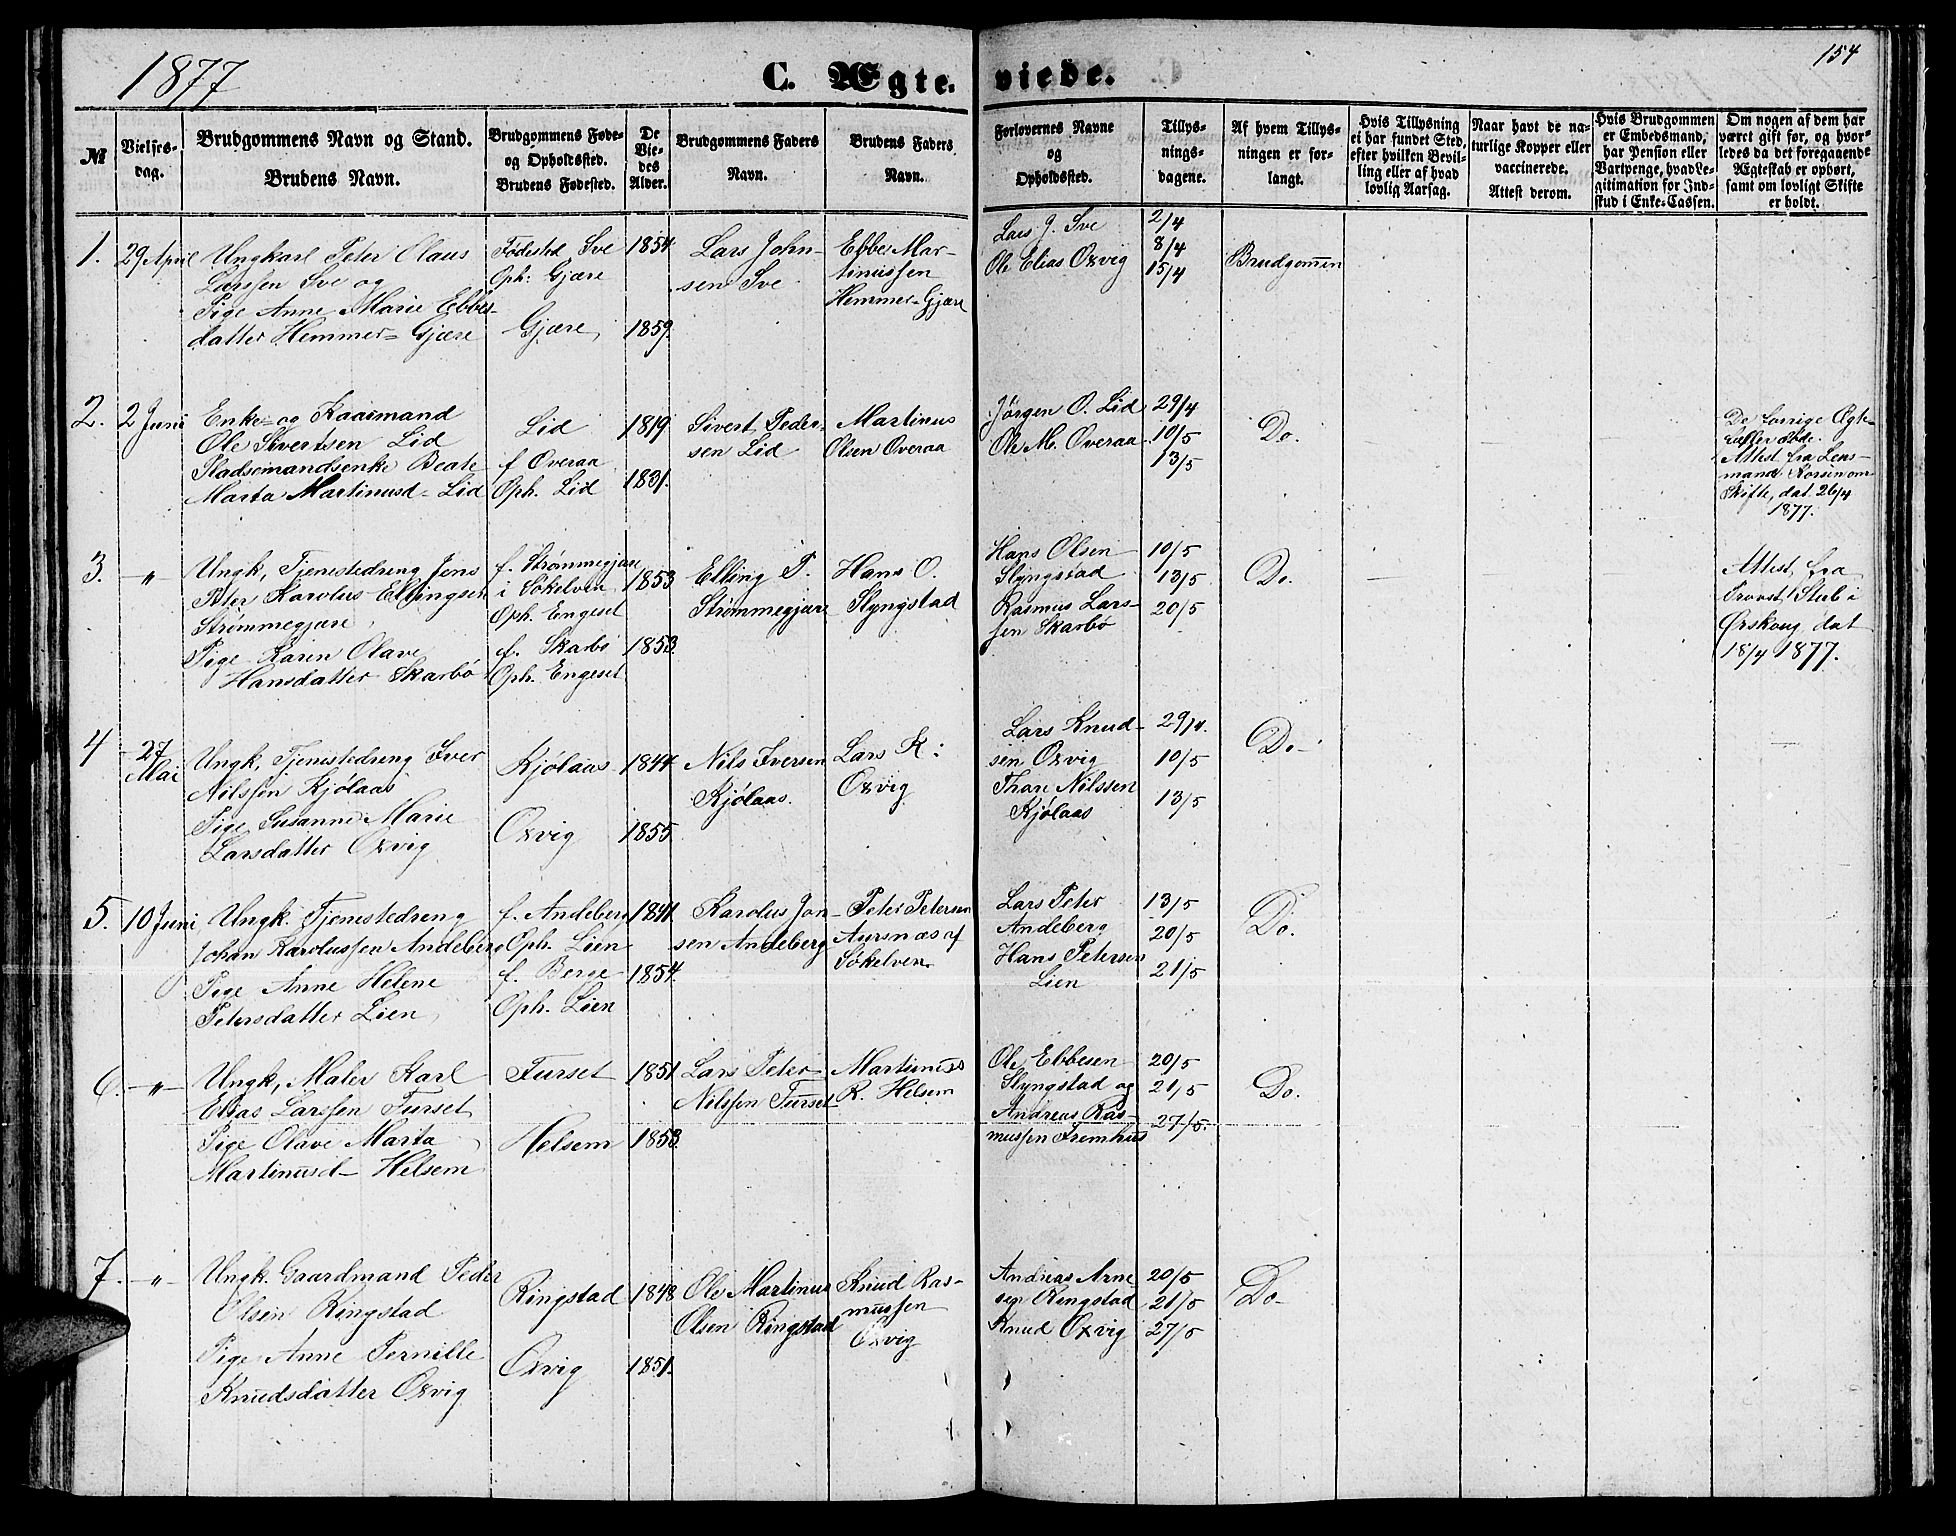 1877
C. Ægte-viede.
154
№
Vielses-
dag.
Brudgommens Navn og Stand.
Brudens Navn.
Brudgommens Føde-
og Opholdssted.
Brudens Fødested.
De
Vie-
des
Alder.
Brudgommens Faders
Navn.
Brudens Faders
Navn.
Forlovernes Navne
og
Opholdssted.
Tillys-
nings-
dagene.
Af hvem Tillys-
ningen er for-
langt.
Hvis Tillysning
ei har fundet Sted,
efter hvilken Bevil-
ling eller af hvad
lovlig Aarsag.
Naar havt de na-
turlige Kopper eller
vaccinerede.
Attest derom.
Hvis Brudgommen
er Embedsmand,
har Pension eller
Vartpenge, hvad Le-
gitimation for Ind-
skud i Enke-Cassen.
Om nogen af dem har
været gift før, og hvor-
ledes da det foregaaende
Ægteskab er ophørt,
samt om lovligt Skifte
er holdt.
1.
29 April
Ungkarl Peter Olaus
Larssen Sve og
Pige Anne Marie Ebbes-
datter Hemmer=Gjære
Fødested Sve
Oph: Gjære
Gjære,
1854.
1859.
Lars John-
sen Sve
Ebbe Mar-
tinussen
Hemmer=Gjære
Lars J. Sve
Ole Elias Oxvig
2/4
8/4
15/4
Brudgommen
2.
2 Juni
Enke- og Kaarmand
Ole Sivertsen Lid
Stadsemandsenke Beate
Marta Martinusd- Lid
Lid
f Overaa
Oph. Lid
1819
1831.
Sivert Peder-
sen Lid
Martinus
Olsen Overaa
Jørgen O. Lid
Ole M. Overaa
29/4
10/5
13/5
Do.
De forrige Ægte-
fæller døde.
Attest fra Lens-
mand Korsen om
Skifte, dat. 26/4
1877.
3.
-"-
Ungk, Tjenestedreng Jens
Peter Karolus Ellingsen
Strømmegjære,
Pige Karen Olave
Hansdatter Skarbø
f. Strømmegjære
i Søkelven
Oph. Engeset
f. Skarbø
Oph. Engeset
1853
1853.
Elling P.
Strømmegjære
Hans O.
Slyngstad
Hans Olsen
Slyngstad
Rasmus Lars-
sen Skarbø
10/5
13/5
20/5
Do.
Attest fra
Provst Stub i
Ørskoug dat
18/4 1877.
4
27
Mai
Ungk, Tjenestedreng Iver
Nilssen Kjølaas
Pige Susanne Marie
Larsdatter Oxvig
Kjølaas
Oxvig
1844
1855.
Nils Iversen
Kjølaas.
Lars K:
Oxvig
Lars Knud-
sen Oxvig
Thore Nilssen
Kjølaas
29/4.
10/5
13/5
Do-
5.
10 Juni
Ungk. Tjenestedreng
Johan Karolussen Andeberg
Pige Anne Helene
Petersdatter Lien
f. Andeberg
Oph. Lien
f. Berge
Oph. Lien
1841.
1854.
Karolus Jon-
sen Andeberg
Peter Petersen
Aursnæs af
Søkelven.
Lars Peter
Andeberg
Hans Petersen
Lien
13/5
20/5
21/5
Do.
6.
-"-
Ungk, Maler Karl
Elias Larssen Furset
Pige Olave Marta
Martinusd- Helsem
Furset
Helsem
1851
1853.
Lars Peter
Nilssen Furset
Martinus
R. Helsem
Ole Ebbesen
Slyngstad og
Andreas Ras-
mussen Fremhus
20/5
21/5
27/5.
Do.
7.
-"-
Ungk. Gaardmand Peder
Olsen Ringstad
Pige Anne Pernille
Knudsdatter Oxvig
Ringstad
Oxvig
1848
1851.
Ole Martinus
Olsen Ringstad
Knud Ras-
mussen
Oxvig
Andreas Arne
sen Ringstad
Knud Oxvig
20/5
21/5
27/5
Do-